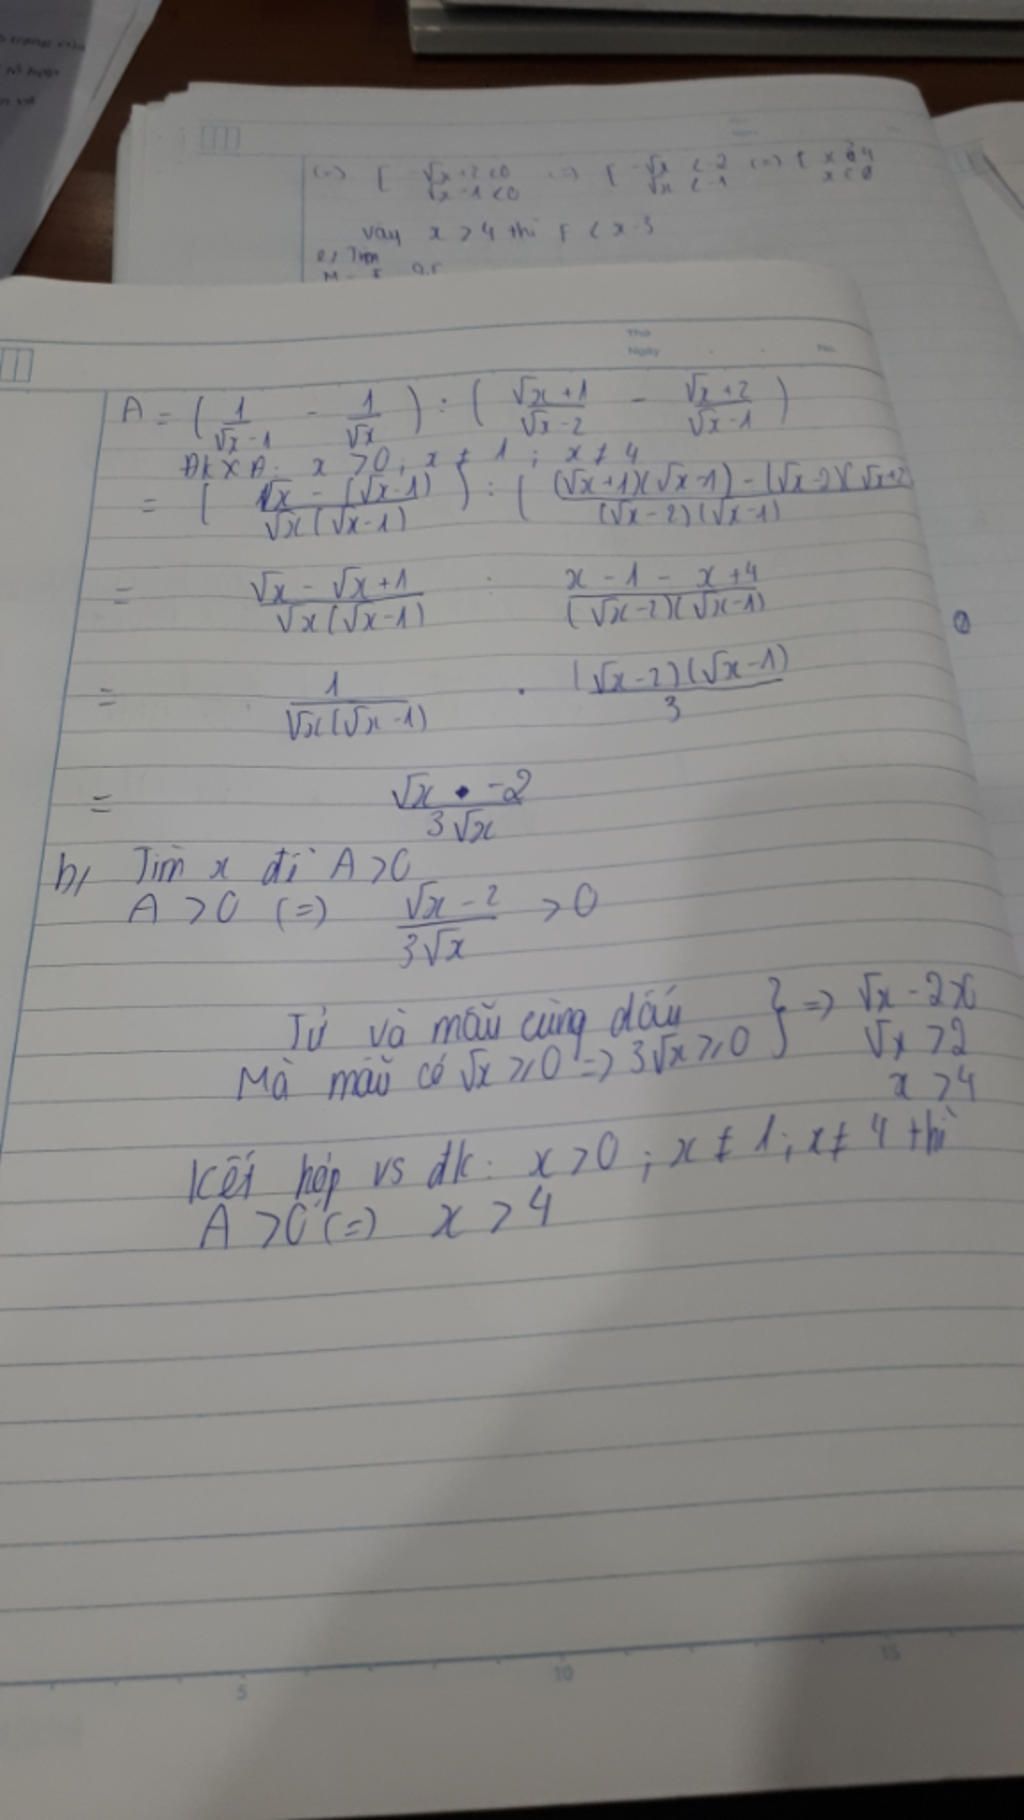 (=) [ -√x + 2 < 0 (=) [ -√x < -2 (=) [ x > 4
√x - 1 < 0 √x < -1 x < 0
vây x > 4 thì F < x-3
e, Tìm
Thứ
Ngày No.
A = ( 1/(√x - 1) - 1/√x ) : ( (√x + 1)/(√x - 2) - (√x + 2)/(√x - 1) )
ĐKXĐ: x > 0; x ≠ 1; x ≠ 4
= ( (√x - (√x - 1))/(√x(√x - 1)) ) : ( ((√x + 1)(√x - 1) - (√x - 2)(√x + 2))/((√x - 2)(√x - 1))
= (√x - √x + 1)/(√x(√x - 1)) : (x - 1 - x + 4)/((√x - 2)(√x - 1))
= 1/(√x(√x - 1)) . ((√x - 2)(√x - 1))/3
= (√x - 2)/(3√x)
b, Tìm x để A > 0
A > 0 (=) (√x - 2)/(3√x) > 0
Tử và mẫu cùng dấu } => √x - 2 > 0
Mà mẫu có √x ⩾ 0 => 3√x ⩾ 0 √x > 2
x > 4
Kết hợp vs đk: x > 0; x ≠ 1; x ≠ 4 thì
A > 0 (=) x > 4
5 10 15